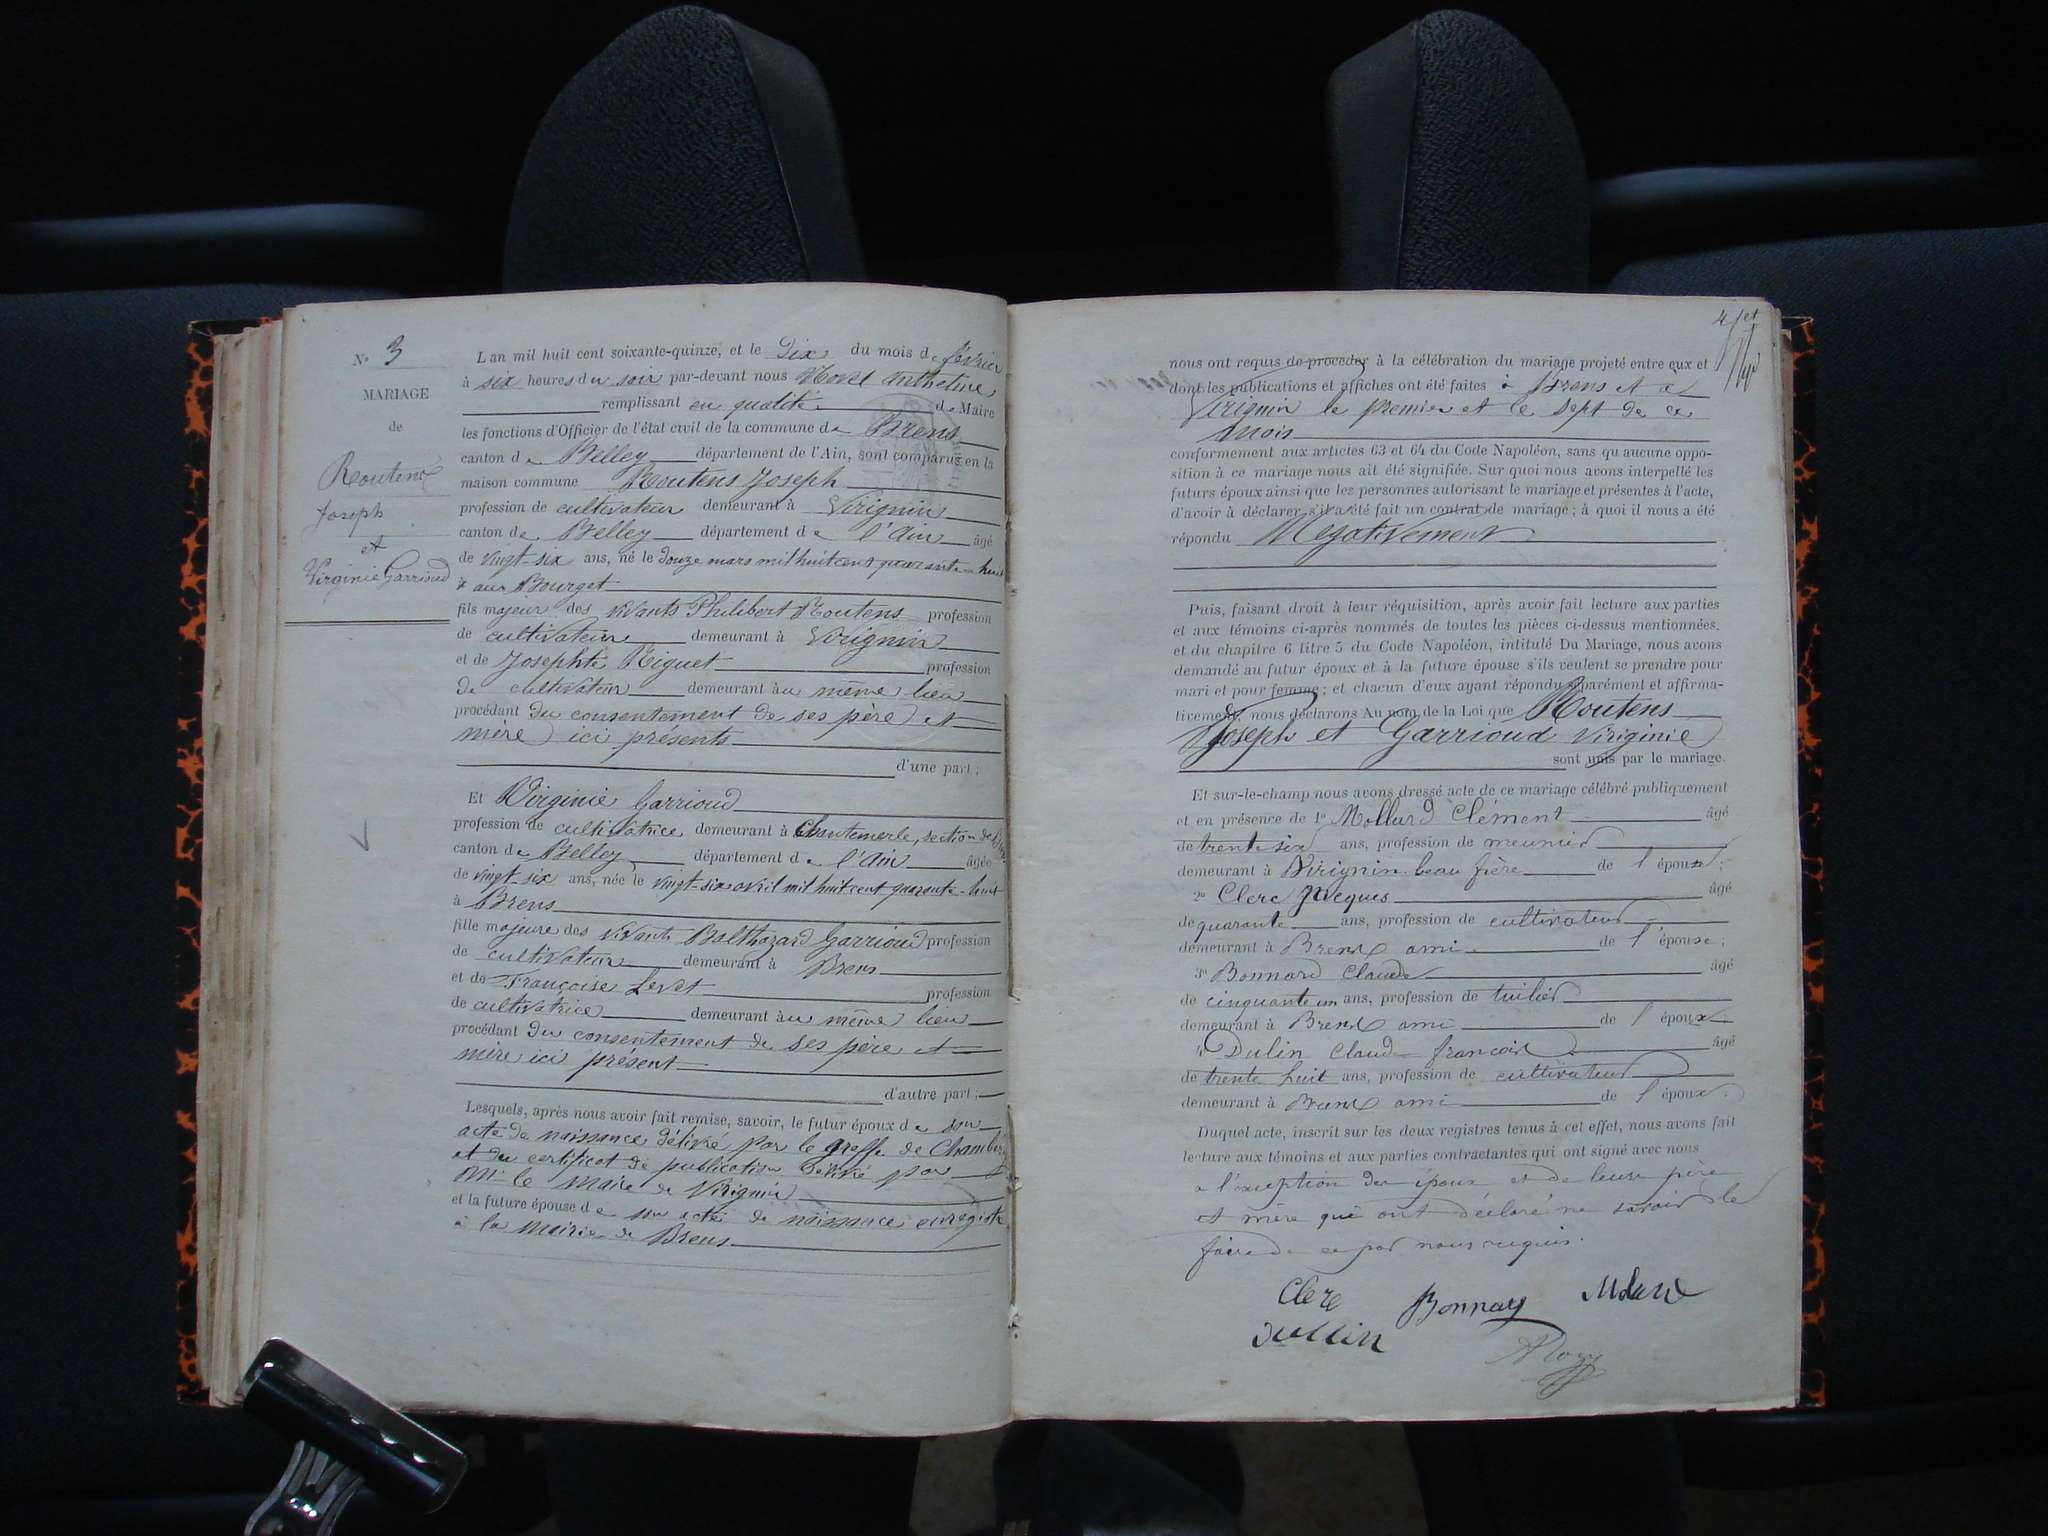 N° 3
MARIAGE
de
Routens
Joseph
et
Virginie Garrioud
L an mil huit cent soixante-quinze, et le Dix du mois de février
à six heures du soir par-devant nous Anthelme
remplissant en qualité de Maire
les fonctions d'Officier de l'état civil de la commune de Brens
canton de Belley département de l'Ain, sont comparus en la
maison commune Routens Joseph
profession de cultivateur demeurant à Virignin
canton de Belley département de l'Ain âgé
de vingt-six ans, né le Douze mars mil huit cent quarante-huit
aux Bourget
fils majeur des vivants Philibert Routens profession
de cultivateur demeurant à Virignin
et de Josephte Riguet profession
de cultivateur demeurant au même lieu
procédant du consentement de ses père et
mère ici présents
d'une part ;
Et Virginie Garrioud
profession de cultivatrice demeurant à Chantemerle, section de
canton de Belley département de l'Ain âgée
de vingt-six ans, née le vingt-six avril mil huit cent quarante-huit
à Brens
fille majeure des vivants Balthazard Garrioud profession
de cultivateur demeurant à Brens
et de Françoise Levet profession
de cultivatrice demeurant au même lieu
procédant du consentement de ses père et
mère ici présent
d'autre part ;
Lesquels, après nous avoir fait remise, savoir, le futur époux de son
acte de naissance délivré par le greffe de Chambéry
et du certificat de publication délivré par
Mr le Maire de Virignin
et la future épouse de son acte de naissance enregistré
à la Mairie de Brens
nous ont requis de procéder à la célébration du mariage projeté entre eux et
dont les publications et affiches ont été faites à Brens et à
Virignin le premier et le sept de ce
mois
conformement aux articles 63 et 64 du Code Napoléon, sans qu'aucune oppo-
sition à ce mariage nous ait été signifiée. Sur quoi nous avons interpellé les
futurs époux ainsi que les personnes autorisant le mariage et présentes à l'acte,
d'avoir à déclarer s'il a été fait un contrat de mariage ; à quoi il nous a été
répondu Négativement
Puis, faisant droit à leur réquisition, après avoir fait lecture aux parties
et aux témoins ci-après nommés de toutes les pièces ci-dessus mentionnées,
et du chapitre 6 titre 5 du Code Napoléon, intitulé Du Mariage, nous avons
demandé au futur époux et à la future épouse s'ils veulent se prendre pour
mari et pour femme ; et chacun d'eux ayant répondu séparément et affirma-
tivement, nous déclarons Au nom de la Loi que Routens
Joseph et Garrioud Virginie
sont unis par le mariage.
Et sur-le-champ nous avons dressé acte de ce mariage célébré publiquement
et en présence de 1° Mollard Clément âgé
de trente six ans, profession de meunier
demeurant à Virignin beau frère de l'époux ;
2° Clerc Jacques âgé
de quarante ans, profession de cultivateur
demeurant à Brens ami de l'épouse ;
3° Bonnard Claude âgé
de cinquante un ans, profession de tuilier
demeurant à Brens ami de l'époux
4° Dulin Claude françois âgé
de trente huit ans, profession de cultivateur
demeurant à Brens ami de l'époux.
Duquel acte, inscrit sur les deux registres tenus à cet effet, nous avons fait
lecture aux témoins et aux parties contractantes qui ont signé avec nous
a l'exception des époux et de leurs père
et mère qui ont déclaré ne savoir le
faire de ce par nous requis.
Clerc Bonnard
Dullin